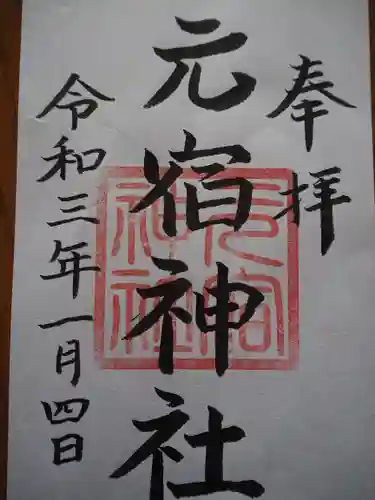 奉拝
元宿神社
令和三年一月四日
元宿神社